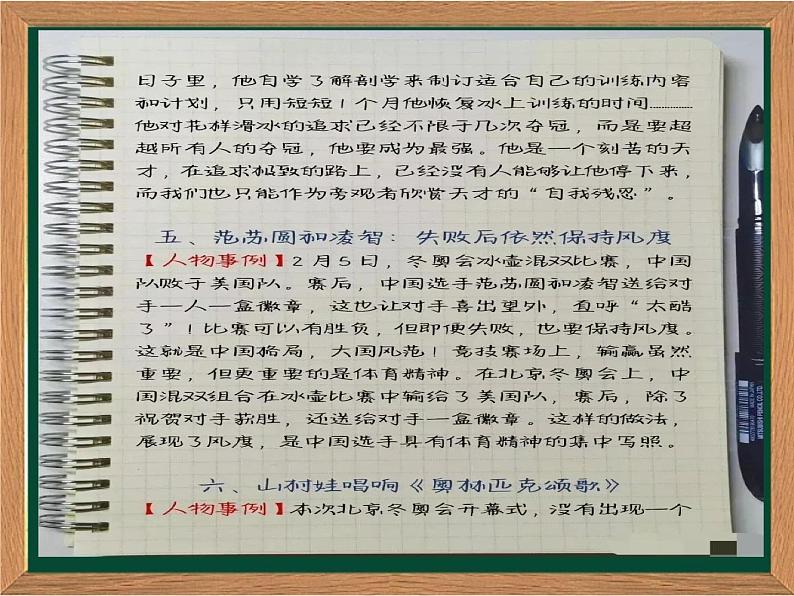 日子里，他自学了解剖学来制订适合自己的训练内容
和计划，只用短短1个月他恢复冰上训练的时间……
他对花样滑冰的追求已经不限于几次夺冠，而是要超
越所有人的夺冠，他要成为最强。他是一个刻苦的天
才，在追求极致的路上，已经没有人能够让他停下来，
而我们也只能作为旁观者欣赏天才的“自我残忍”。
五、范苏圆和凌智：失败后依然保持风度
【人物事例】2月5日，冬奥会冰壶混双比赛，中国
队败于美国队。赛后，中国选手范苏圆和凌智送给对
手一人一盒徽章，这也让对手喜出望外，直呼“太酷
了”！比赛可以有胜负，但即便失败，也要保持风度。
这就是中国格局，大国风范！竞技赛场上，输赢虽然
重要，但更重要的是体育精神。在北京冬奥会上，中
国混双组合在冰壶比赛中输给了美国队，赛后，除了
祝贺对手获胜，还送给对手一盒徽章。这样的做法，
展现了风度，是中国选手具有体育精神的集中写照。
六、山村娃唱响《奥林匹克颂歌》
【人物事例】本次北京冬奥会开幕式，没有出现一个
MITSUBISHI PENCIL CO.,LTD.